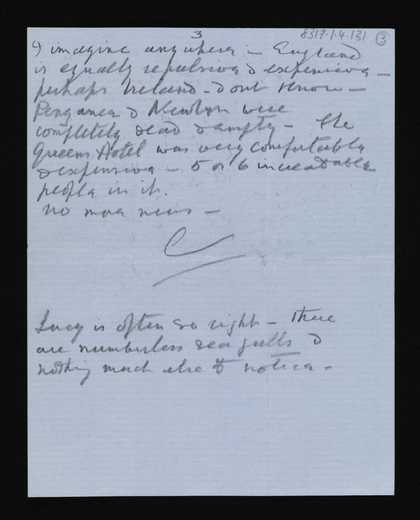 3
8317.1.4.131 3
I imagine anywhere in England
is equally repulsive & expensive —
perhaps Ireland — dont know —
Penzance & Newlyn were
completely dead & empty — The
Queens Hotel was very comfortable
& expensive — 5 or 6 incredible
people in it.
No more news —
C
Lucy is often so right — there
are numberless sea gulls &
nothing much else to notice —